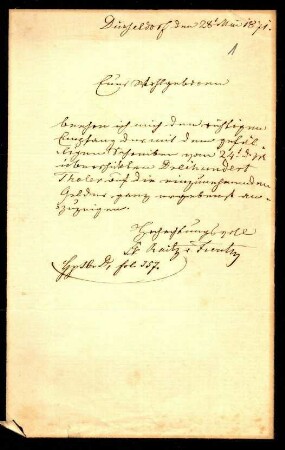 Düsseldorf den 28t Mai 1871.
1
Euer Wohlgeboren
beehre ich mich den richtigen
Empfang der mit dem gefäl-
ligen Schreiben vom 24t d. M.
überschickten Dreihundert
Thaler auf die einzunehmenden
Gelder, ganz ergebenst an-
zuzeigen.
Hochachtungsvoll
Raitz v. Frentz
fol. 157.